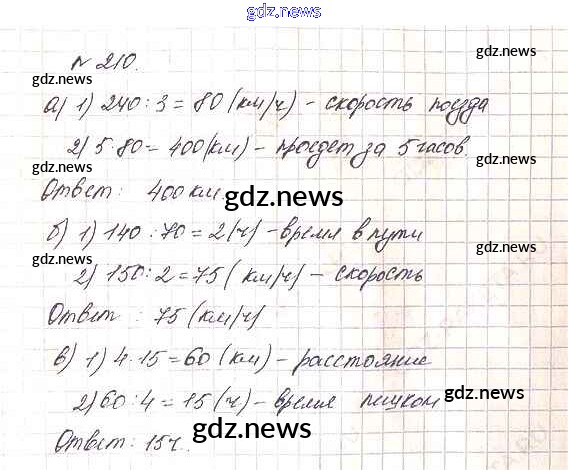 gdz.news
№ 210.
gdz.news
gdz.news
а) 1) 240 : 3 = 80 (км/ч) - скорость поезда
2) 5 · 80 = 400 (км) - проедет за 5 часов.
gdz.news
gdz.news
Ответ: 400 км.
gdz.news
б) 1) 140 : 70 = 2 (ч) - время в пути
gdz.news
gdz.news
2) 150 : 2 = 75 (км/ч) - скорость
Ответ: 75 (км/ч)
gdz.news
gdz.news
в) 1) 4 · 15 = 60 (км) - расстояние
2) 60 : 4 = 15 (ч) - время пешком
gdz.news
gdz.news
Ответ: 15 ч.